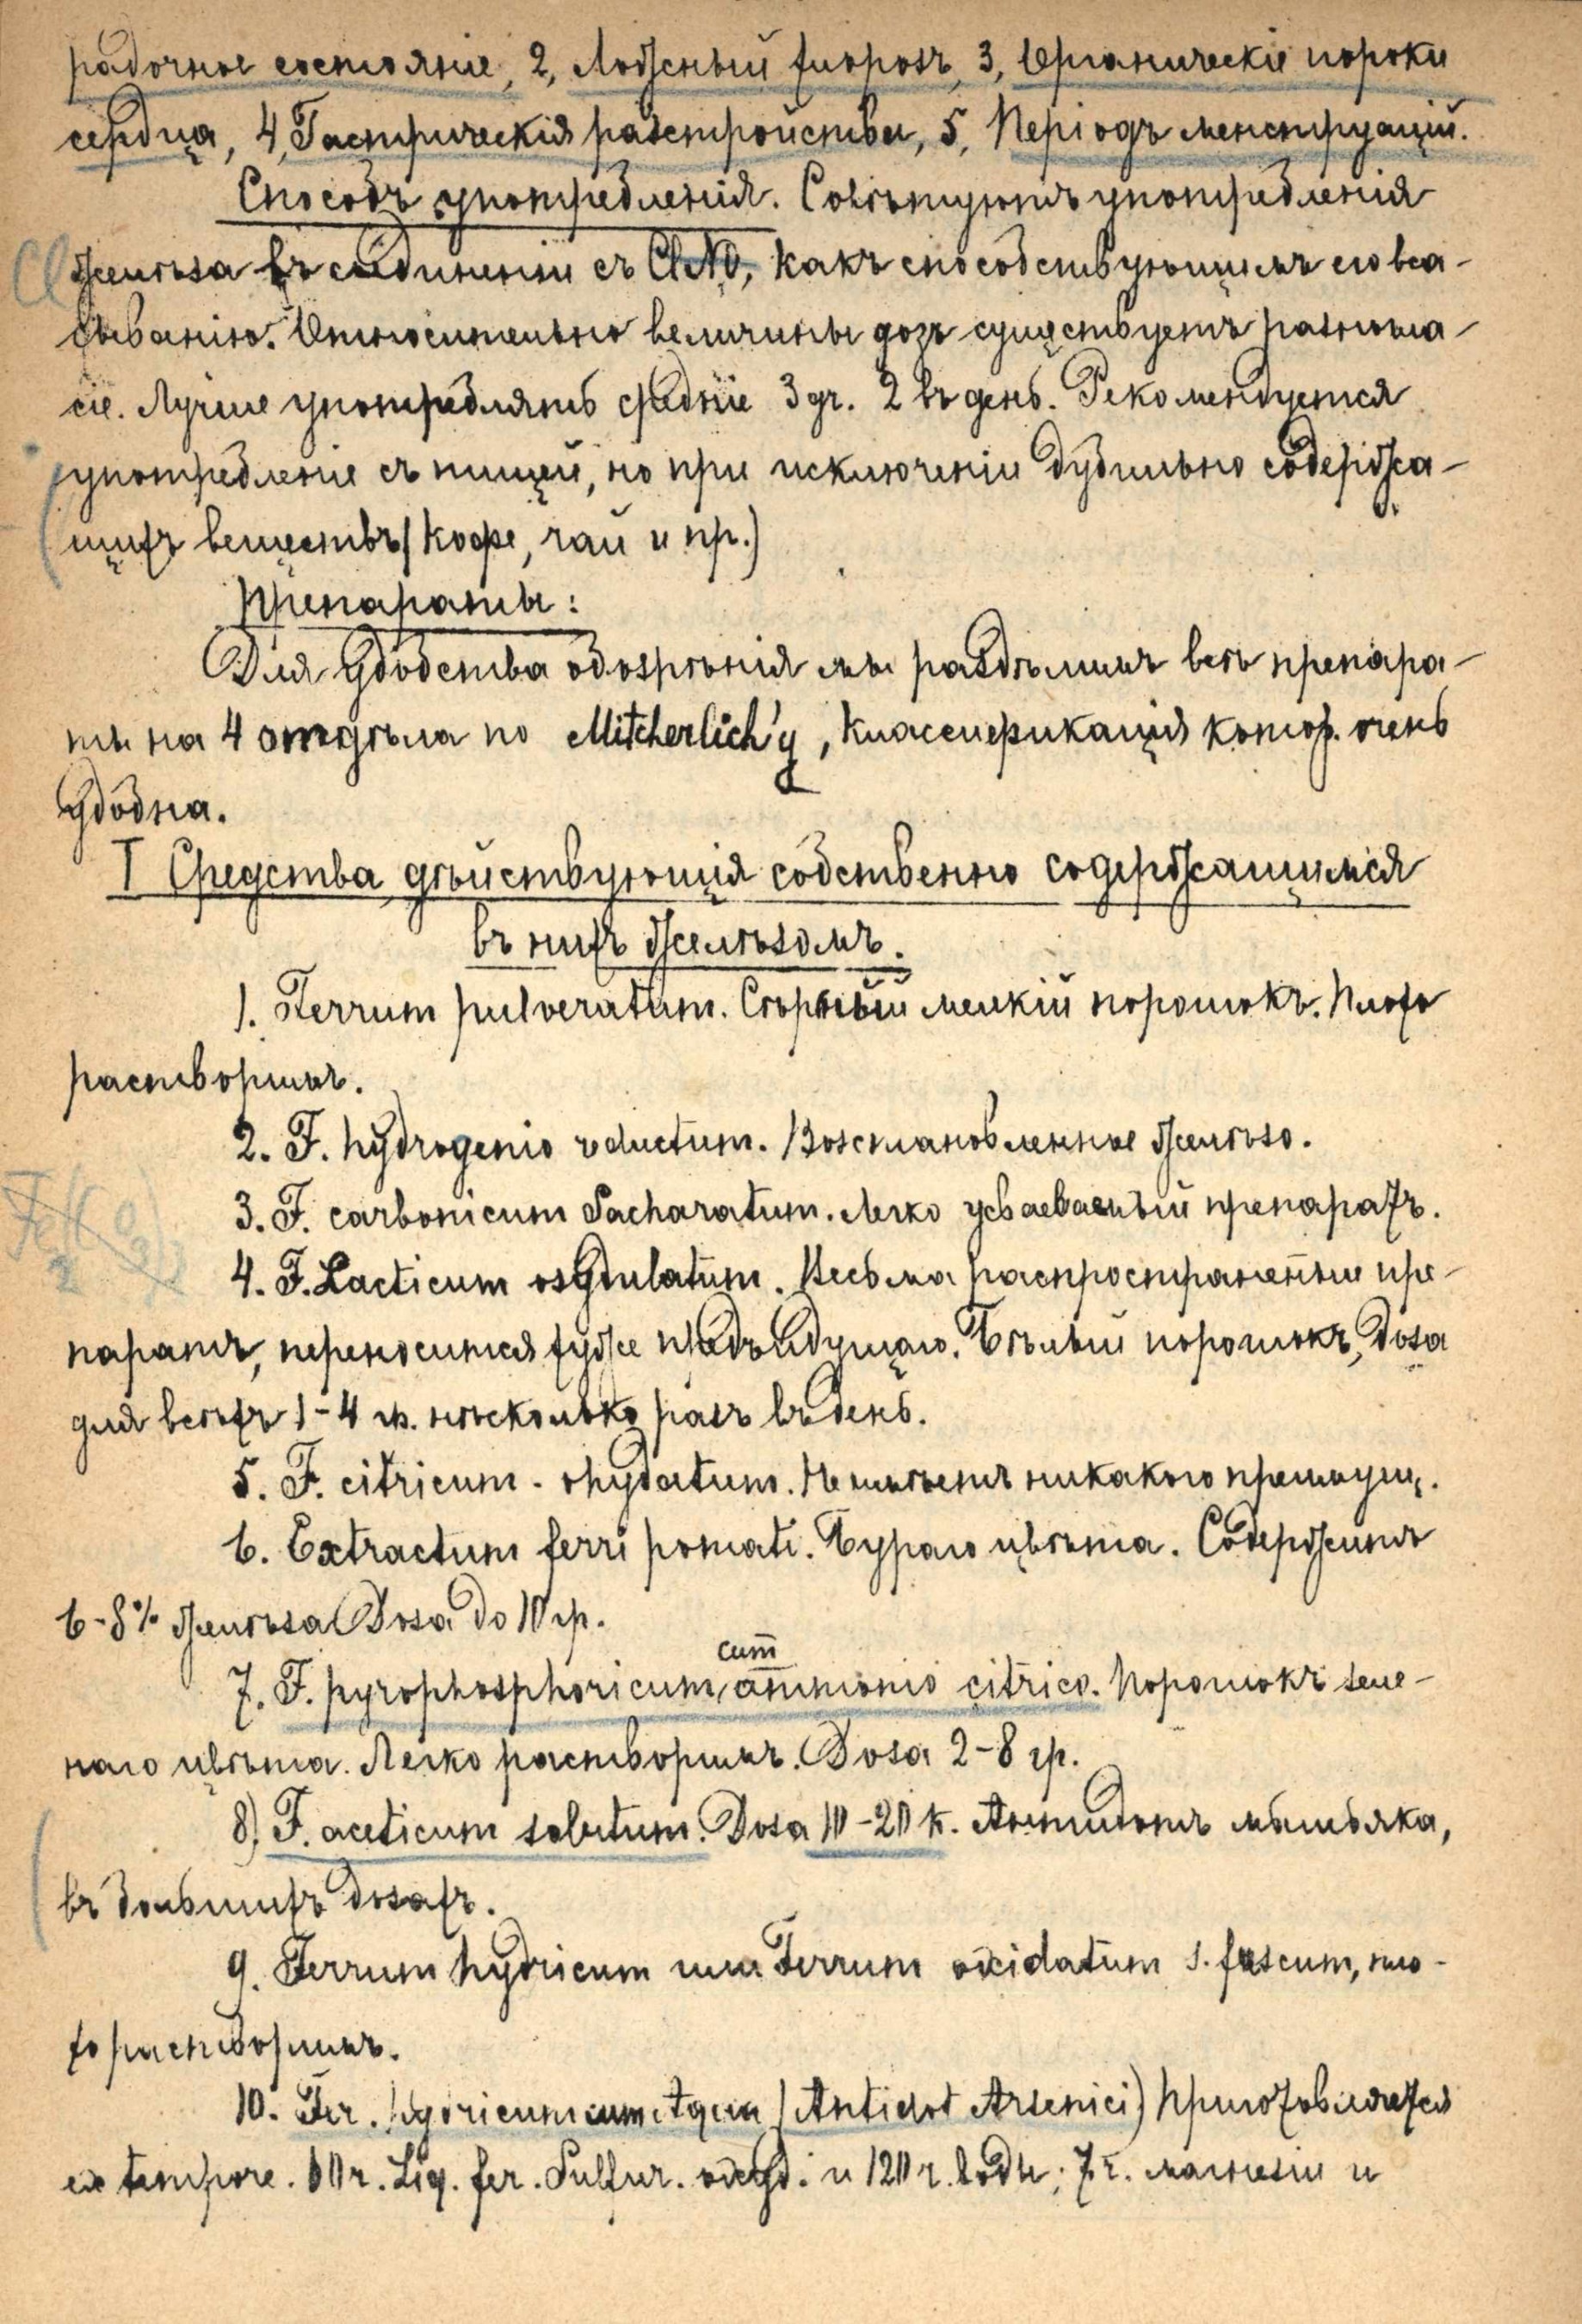 радочное состояніе, 2, Ложный хлорозъ, 3, Органическіе пороки
сердца, 4, Гастрическія разстройства, 5, Періодъ менструацій.
Способъ употребленія. Совѣтуютъ употребленія
желѣза въ соединеніи съ ClNa, какъ способствующимъ его вса-
сыванію. Относительно величины дозъ существуетъ разногла-
сіе. Лучше употреблять средніе 3 gr. 2 въ день. Рекомендуется
употребленіе съ пищей, но при исключеніи дубильно содержа-
щихъ веществъ (кофе, чай и пр.)
Препараты:
Для удобства обозрѣнія мы раздѣлимъ всѣ препара-
ты на 4 отдѣла по Mitcherlich'у, классификація котор. очень
удобна.
I Средства, дѣйствующія собственно содержащимся
въ нихъ желѣзомъ.
1. Ferrum pulveratum. Сѣрный мелкій порошокъ. Плохо
растворимъ.
2. F. hydrogenio reductum. Возстановленное желѣзо.
3. F. carbonicum Sacharatum. Легко усваеваемый препаратъ.
4. F. Lacticum oxydulatum. Весьма распространенные пре-
паратъ, переносится хуже предъидущаго. Бѣлый порошокъ, доза
для всѣхъ 1-4 гр. нѣсколько разъ въ день.
5. F. citricum - ohydatum. Не имѣетъ никакого преимущ.
6. Extractum ferri pomati. Бураго цвѣта. Содержитъ
6-8% желѣза Доза до 10 гр.
7. F. pyrophosphoricum, cum ammonio citrico. Порошокъ зеле-
наго цвѣта. Легко растворимъ. Доза 2-8 гр.
8) F. aceticum solutum. Доза 10-20 к. Антидотъ мышьяка,
въ большихъ дозахъ.
9. Ferrum hydricum или Ferrum oxidatum s. fuscum, пло-
хо растворимъ.
10. Fer. hydricum cum Aqua (Antidot Arsenici) Приготовляется
ex tempore. 60 г. Liq. fer. Sulfur. oxyd. и 120 г. воды; 7 г. магнезіи и